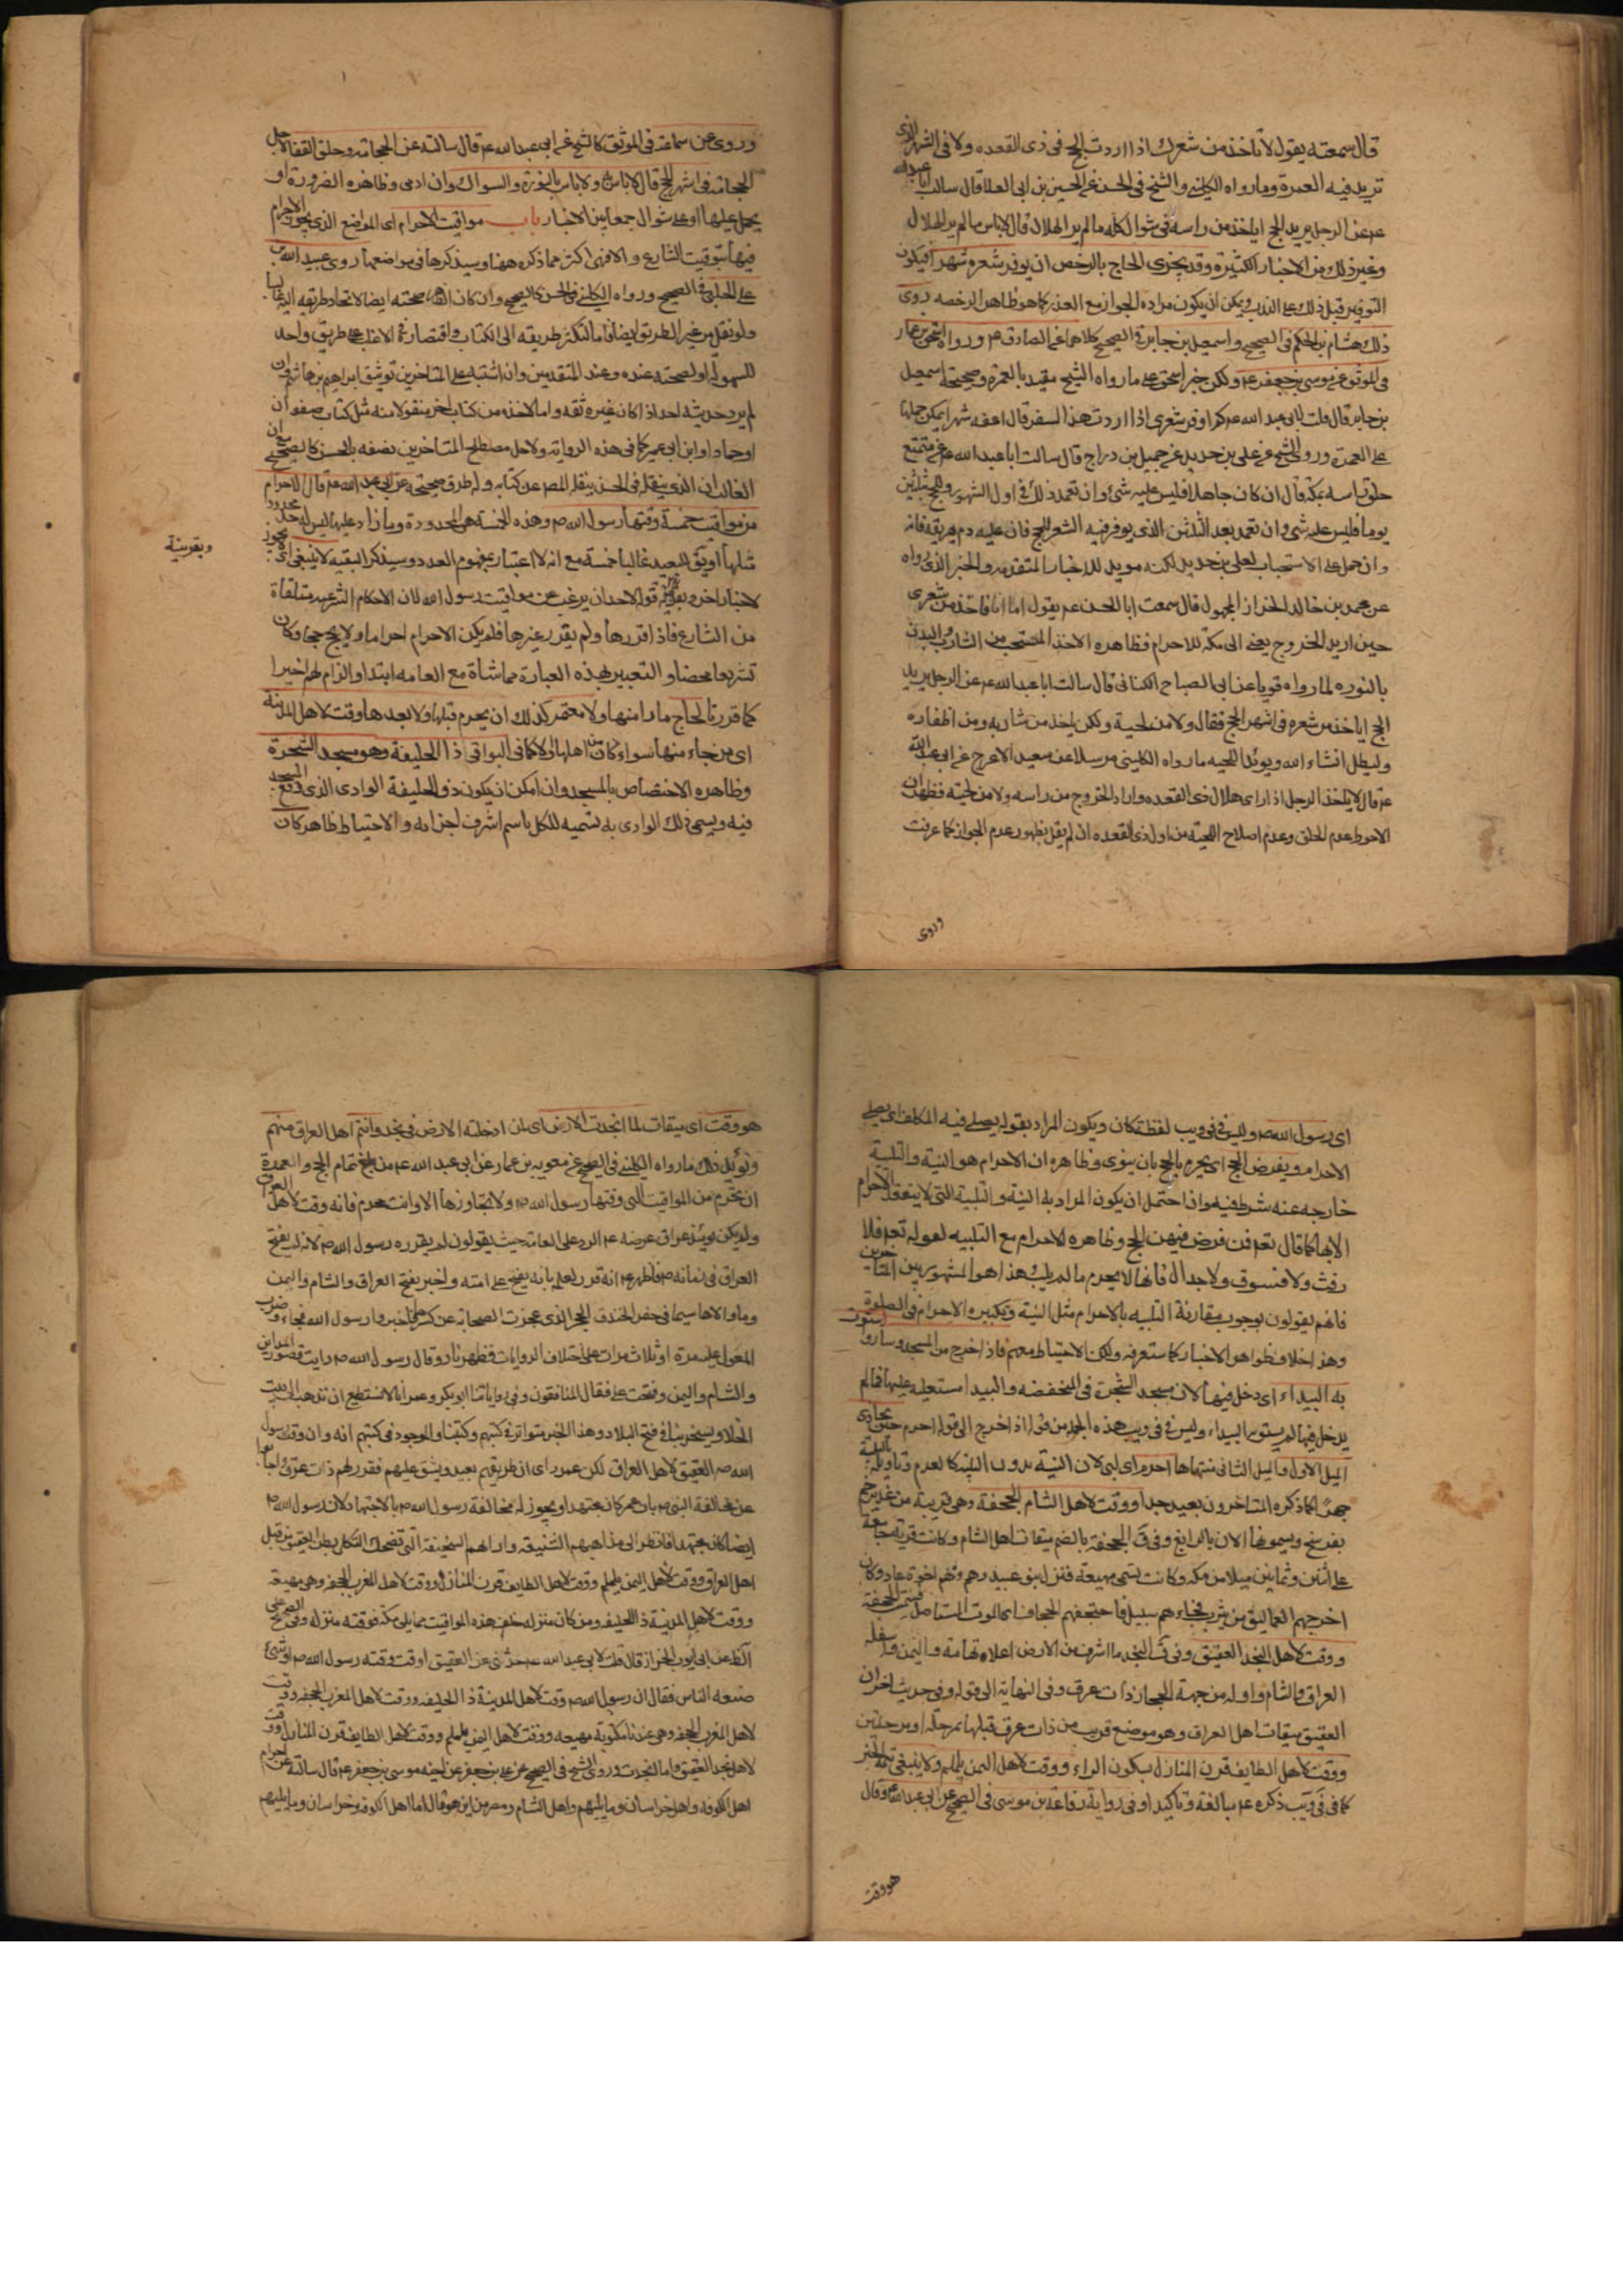 قال سمعته يقول لا تاخذ من شعرك اذا اردت الحج فى ذى القعده ولا فى الشهر الذى
تريد فيه العمرة وما رواه الكلينى والشيخ فى الحسن عن الحسين بن ابى العلا قال سالت ابا عبد الله
عم عن الرجل يريد الحج اياخذ من راسه فى شوال كله ما لم ير الهلال قال لا باس ما لم ير الهلال
وغير ذلك من الاخبار الكثيرة وقد يجزى الحاج بالرخص ان يوفر شعره شهرا فيكون
التوفير قبل ذلك على الندب ويمكن ان يكون مراده الجواز مع العذر كما هو ظاهر الرخصه روى
ذلك هشام بن الحكم فى الصحيح واسمعيل بن جابر فى الصحيح كلاهما عن الصادق عم ورواه اسحق بن عمار
فى الموثق عن موسى بن جعفر عم ولكن خبر اسحق على ما رواه الشيخ مقيد بالعمرة وصحيحة اسمعيل
بن جابر قال قلت لابى عبد الله عم كم اوفر شعرى اذا اردت هذا السفر قال اعفه شهرا يمكن حملها
على العمرة وروى الشيخ عن على بن حديد عن جميل بن دراج قال سالت ابا عبد الله عم عن متمتع
حلق راسه بمكة قال ان كان جاهلا فليس عليه شئ وان تعمد ذلك فى اول الشهور للحج بثلثين
يوما فليس عليه شى وان تعمد بعد الثلثين الذى يوفر فيه الشعر للحج فان عليه دم يهريقه فانه
وان حمل على الاستحباب لعلى بن حديد لكنه مويد للاخبار المتقدمه والخبر الذى رواه
عن محمد بن خالد الخزاز المجهول قال سمعت ابا الحسن عم يقول اما انا فاخذ من شعرى
حين اريد الخروج يعنى الى مكة للاحرام فظاهره الاخذ المستحب من الشارب والبدن
بالنوره لما رواه قويا عن ابى الصباح الكنانى قال سالت ابا عبد الله عم عن الرجل يريد
الحج اياخذ من شعره فى اشهر الحج فقال ولا من لحية ولكن ياخذ من شاربه ومن اظفاره
وليطل انشاء الله ويؤيد اللحيه ما رواه الكلينى مرسلا عن سعيد الاعرج عن ابى عبد الله
عم قال لا ياخذ الرجل اذا راى هلال ذى القعده واراد الخروج من راسه ولا من لحيته فظهر ان
الاحوط عدم الحلق وعدم اصلاح اللحية من اول ذى القعده ان لم يقل بظهور عدم الجواز كما عرفت
وروى
وروى عن سماعة فى الموثق كالشيخ عن ابى عبد الله عم قال سالته عن الحجامة وحلق القفا لاجل
الحجامة فى اشهر الحج قال لا باس به ولا باس بالنورة والسواك وان ادمى وظاهره الضرورة او
يحمل عليها او على شوال جمعا بين الاخبار باب مواقيت الاحرام اى المواضع الذى يجوز الاحرام
فيها بتوقيت الشارع والا فهى اكثر مما ذكره ههنا وسيذكرها فى مواضعها روى عبيد الله بن
على الحلبى فى الصحيح ورواه الكلينى فى الحسن كالصحيح وان كان الظاهر صحته ايضا لاتحاد طريقه اليه غالبا
ولو نقل من غير الطريق ايضا فاما لتكثر طريقه الى الكتاب واقتصار فى الاغلب على طريق واحد
للسهولة او لصحته عنده وعند المتقدمين وان اشتبه على المتاخرين توثيق ابراهيم بن هاشم فان
لم يرد حديثه احد اذا كان غيره ثقه واما لاخذه من كتاب اخر منقولا منه مثل كتاب صفوان
او حماد او ابن ابى عمير كما فى هذه الرواية ولاجل مصطلح المتاخرين نصفه بالحسن كالصحيح مع ان
الغالب ان الذى ينقله فى الحسن ينقله المصـ عن كتابه وله طرق صحيحة عن ابى عبد الله عم قال الاحرام
من مواقيت خمسة وقتها رسول الله ص وهذه الخمسة هى المحدودة وما زاد عليها ليس له حد محدود
مثلها او يتفق للبعيد غالبا خمسة مع انه لا اعتبار بمفهوم العدد وسيذكر البقيه لا ينبغى اى لا يجوز
لاخبار اخر وبقرينة قوله لاحد ان يرغب عن مواقيت رسول الله لان الاحكام الشرعيه متلقاة
من الشارع فاذا قررها ولم يقرر غيرها فلم يكن الاحرام احراما ولا الحج حجا وكان
تشريعا محضا والتعبير بهذه العبارة مماشاة مع العامه ابتداء والزام لهم اخيرا
كما قررنا لحاج مارا منها ولا معتمر كذلك ان يحرم قبلها ولا بعدها وقت لاهل المدينة
اى من جاء منها سواء كان من اهلها او لا كما فى البواقى ذا الحليفة وهو مسجد الشجرة
وظاهره الاختصاص بالمسجد وان امكن ان يكون ذو الحليفة الوادى الذى وقع المسجد
فيه ويسمى ذلك الوادى به تسميه للكل باسم اشرف اجزائه والاحتياط ظاهر كان
وبقرينة
اى رسول الله ص وليس فى فى ويب لفظة كان ويكون المراد بقوله يصلى فيه المكلف اى يصلى
الاحرام ويفرض الحج اى يحرم بالحج بان ينوى وظاهره ان الاحرام هو النية والتلبية
خارجه عنه شرط فيه وان احتمل ان يكون المراد به النية والتلبية التى لا ينعقد الاحرام
الا بها كما قال تعم فمن فرض فيهن الحج وظاهره الاحرام مع التلبيه لقوله تعم فلا
رفث ولا فسوق ولا جدال فانها لا يحرم ما لم يلب وهذا هو المشهور بين المتاخرين
فانهم يقولون بوجوب مقارنة التلبيه بالاحرام مثل النية وتكبيره الاحرام فى الصلوة
وهذا خلاف ظواهر الاخبار كما ستعرفه ولكن الاحتياط معهم فاذا خرج من المسجد وسار واستوت
به البيداء اى دخل فيها لان مسجد الشجرة فى المنخفضه والبيدا مستعليه عليها فما لم
يدخل فيها لم يستو به البيداء وليس فى فى ويب هذه الجمله من قوله اذا خرج الى قوله احرم حين يحاذى
الميل الاول والميل الثانى منتهاها احرم اى لبى لان النية بدون التلبية كالعدم وتاويله بالتلبية
جهرا كما ذكره المتاخرون بعيد جدا ووقت لاهل الشام الجحفة وهى قريبة من غدير خم
بفرسخ ويسمونها الان بالرابغ وفى ق الجحفة بالضم ميقات اهل الشام وكانت قرية جامعة
على اثنين وثمانين ميلا من مكة وكانت تسمى مهيعة فنزل بنو عبيد وهم اخوة عاد وكان
اخرجهم العماليق من يثرب فجاءهم سيل فاجتحفهم الجحاف اى الموت المستاصل فسميت الجحفة
ووقت لاهل النجد العقيق وفى ق النجد ما اشرف من الارض اعلاه تهامة واليمن واسفله
العراق والشام واوله من جهة الحجاز ذات عرق وفى النهاية الى قوله وفى حديث اخر ان
العقيق ميقات اهل العراق وهو موضع قريب من ذات عرق قبلها بمرحلة او مرحلتين
ووقت لاهل الطايف قرن المنازل بسكون الراء ووقت لاهل اليمن يلملم ولا ينبغى تتمة الخبر
كما فى فى ويب ذكره عم مبالغة وتاكيدا وفى رواية رفاعة بن موسى فى الصحيح عن ابى عبد الله عم وقال
هو وقت
هو وقت اى ميقات لما انجدت الارض اى لمن ادخلته الارض فى نجد وانتم اهل العراق منهم
ويؤيد ذلك ما رواه الكلينى فى الصحيح عن معويه بن عمار عن ابى عبد الله عم من تمام الحج والعمرة
ان تحرم من المواقيت التى وقتها رسول الله ص ولا تجاوزها الا وانت محرم فانه وقت لاهل العراق
ولم يكن يومئذ عراق غرضه عم الرد على العامة حيث يقولون لم يقرره رسول الله ص لانه لم يفتح
العراق فى زمانه ص فاظهر عم انه قرر لعلمه بانه يفتح على امته واخبر بفتح العراق والشام واليمن
وما والاها سيما فى حفر الخندق الحجر الذى عجزت الصحابة عن كسرها فاخبروا رسول الله فجاء وضرب
المعول عليه مرة او ثلاث مرات على اختلاف الروايات فظهر نار وقال رسول الله ص رايت قصور المداين
والشام واليمن وفتحت على فقال المنافقون وفى رواياتنا ابو بكر وعمر انا لا نستطيع ان نذهب الى بيت
الخلا ويسخر بنا فى فتح البلاد وهذا الخبر متواتر فى كتبهم وكتبنا والموجود فى كتبهم انه وان وقت رسول
الله ص العقيق لاهل العراق لكن عمر راى ان طريقهم بعيد ويشق عليهم فقرر لهم ذات عرق واجابوا
عن مخالفة النبى ص بان عمر كان مجتهدا ويجوز له مخالفة رسول الله ص بالاجتهاد لان رسول الله ص
ايضا كان مجتهدا فانظر الى مذاهبهم الشنيعة وارائهم السخيفة التى تضحك الثكلى بطن العقيق من قبل
اهل العراق ووقت لاهل اليمن يلملم ووقت لاهل الطايف قرن المنازل ووقت لاهل المغرب الجحفه وهى مهيعة
ووقت لاهل المدينة ذا الحليفه ومن كان منزله خلف هذه المواقيت مما يلى مكة فوقته منزله وفى الصحيح
عن ابى ايوب الخزاز قال قلت لابى عبد الله عم حدثنى عن العقيق اوقت وقته رسول الله ص او شئ
صنعه الناس فقال ان رسول الله ص وقت لاهل المدينة ذا الحليفه ووقت لاهل المغرب الجحفه ووقت
لاهل المغرب الجحفه وهى عندنا مكتوبة مهيعه ووقت لاهل اليمن يلملم ووقت لاهل الطايف قرن المنازل ووقت
لاهل نجد العقيق وما انجدت وروى الشيخ فى الصحيح عن على بن جعفر عن اخيه موسى بن جعفر عم قال سالته عن احرام
اهل الكوفه واهل خراسان وما يليهم واهل الشام ومصر من اين هو قال اما اهل الكوفة وخراسان وما يليهم